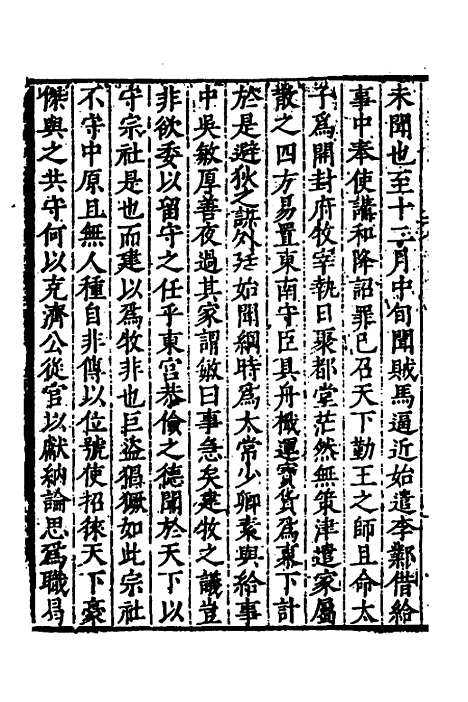 未聞也至十二月中旬聞賊馬逼近始遣李鄴借給
事中奉使講和降詔罪已召天下勤王之師且命太
子爲開封府牧宰執日聚都堂茫然無策津遣家屬
散之四方易置東南守臣具舟檝運寳貨爲東下計
於是避狄之謀外廷始聞綱時爲太常少卿素與給事
中吳敏厚善夜過其家謂敏曰事急矣建牧之議豈
非欲委以留守之任乎東宮恭儉之德聞於天下以
守宗社是也而建以爲牧非也巨盗猖獗如此宗社
不守中原且無人種自非傳以位號使招徠天下豪
傑與之共守何以克濟公從官以獻納論思爲職曷